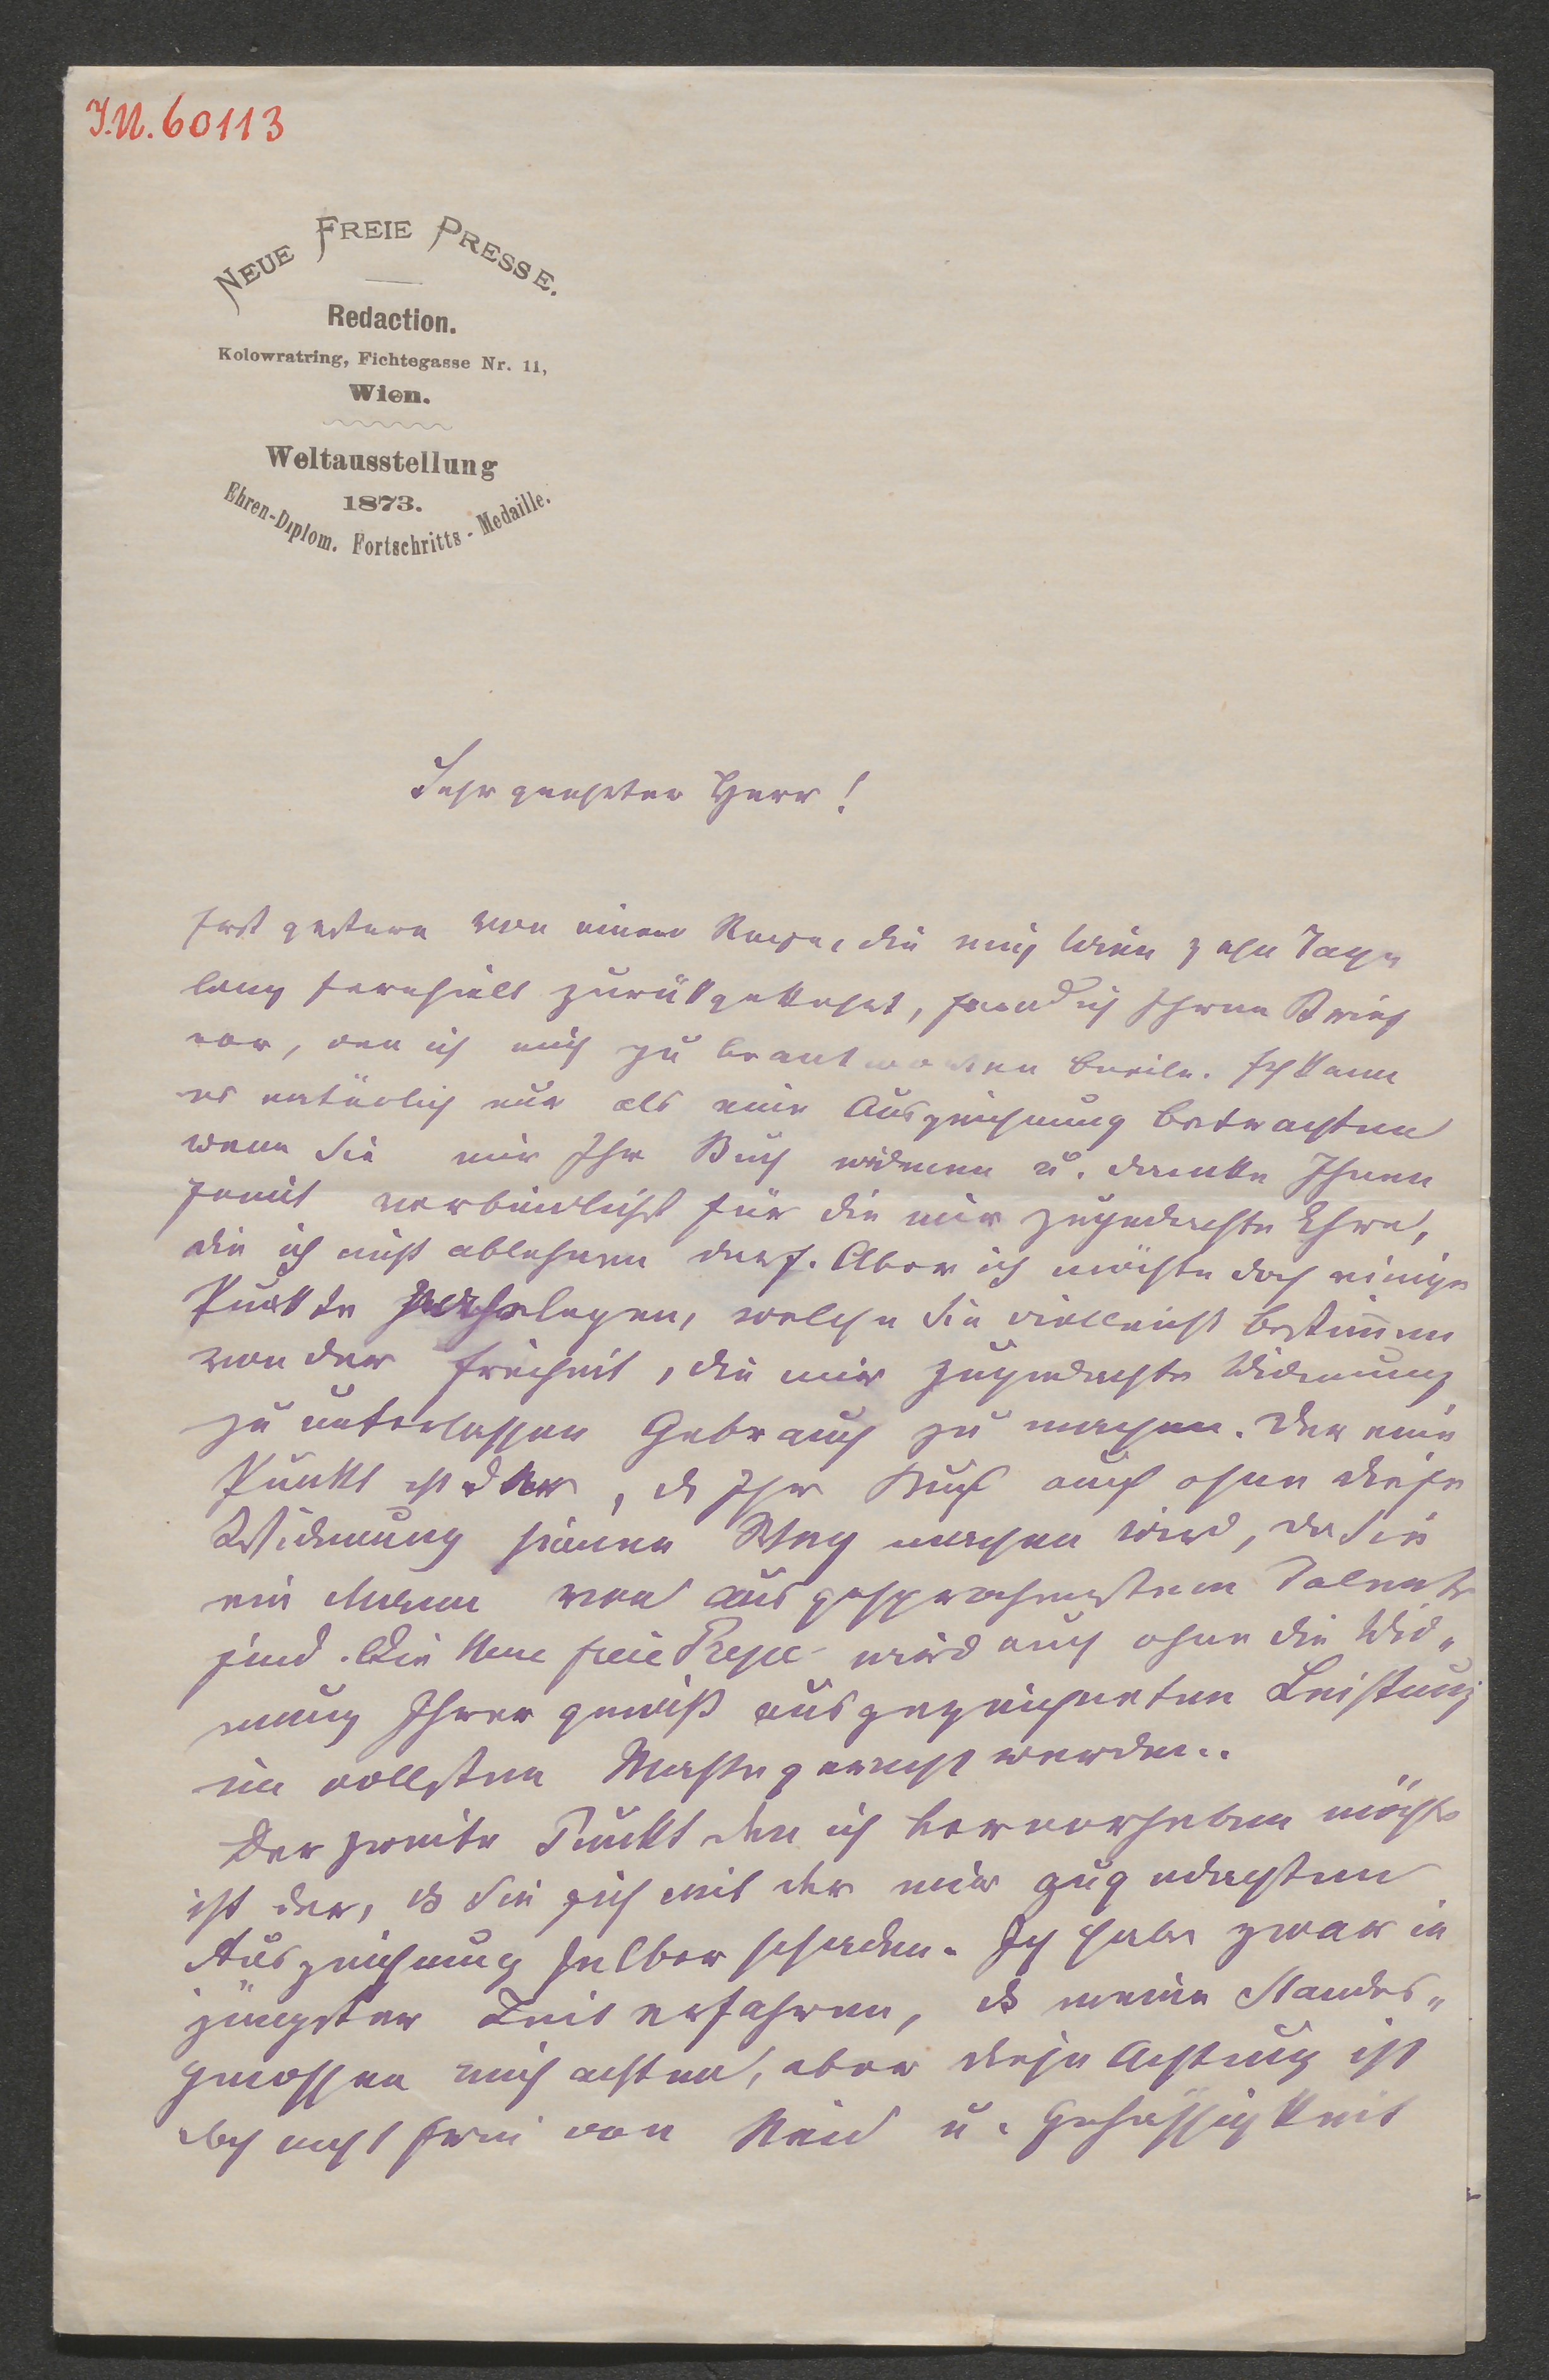 I.N. 60113
NEUE FREIE PRESSE.
Redaction.
Kolowratring, Fichtegasse Nr. 11,
Wien.
Weltausstellung
1873.
Ehren-Diplom. Fortschritts-Medaille.
Sehr geehrter Herr!
Erst gestern von einer Reise, die mich Wien zehn Tage
lang fernhielt zurückgekehrt, fand ich Ihren Brief
vor, den ich mich zu beantworten beeile. Ich kann
es natürlich nur als eine Auszeichnung betrachten
wenn Sie mir Ihr Buch widmen u. danke Ihnen
somit verbindlichst für die mir zugedachte Ehre,
die ich nicht ablehnen darf. Aber ich möchte doch einige
Punkte legen, welche Sie vielleicht bestimmen
von der Freiheit, die mir zugedachte Widmung
zu unterlassen Gebrauch zu machen. Der eine
Punkt ist der, ds Ihr Buch auch ohne diese
Widmung seinen Weg machen wird, da Sie
ein Mann von ausgesprochenstem Talente
sind. Die Neue freie Presse wird auch ohne die Wid„
mung Ihrer gewiß ausgezeichneten Leistung
im vollsten Masse gerecht werden.
Der zweite Punkt den ich hervorheben möchte
ist der, ds Sie sich mit der mir zugedachten
Auszeichnung selber schaden. Ich habe zwar in
jüngster Zeit erfahren, ds meine Standes„
genossen mich achten, aber diese Achtung ist
doch nicht frei von Neid u. Gehässigkeit